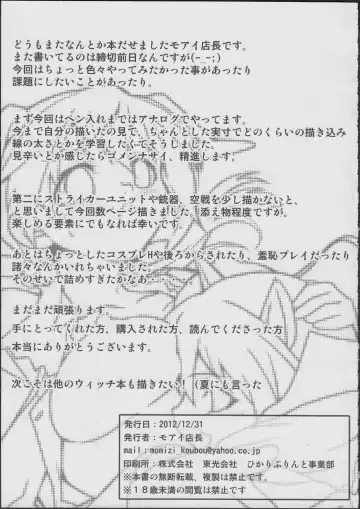 どうもまたなんとか本だせましたモアイ店長です。
また書いてるのは締切前日なんですが(- -;)
今回はちょっと色々やってみたかった事があったり
課題にしたいことがあったり。
まず今回はペン入れまではアナログでやってます。
今まで自分の描いたの見て、ちゃんとした実寸でどのくらいの描き込み
線の太さとかを学習したくてそうしました。
見辛いとか感じたらゴメンナサイ、精進します。
第二にストライカーユニットや銃器、空戦を少し描かないと、
と思いまして今回数ページ描きました。添え物程度ですが。
楽しめる要素にでもなれば幸いです。
あとはちょっとしたコスプレHや後ろからされたり、羞恥プレイだったり
諸々なんかいれちゃいました。
そのせいで詰めすぎたかなあ・・・。
まだまだ頑張ります。
手にとってくれた方、購入された方、読んでくださった方
本当にありがとうございます。
次こそは他のウィッチ本も描きたい！（夏にも言った
発行日：2012/12/31
発行者：モアイ店長
mail：momizi_koubou@yahoo.co.jp
印刷所：株式会社　東光会社　ひかりぷりんと事業部
※本書の無断転載、複製は禁止です。
※１８歳未満の閲覧は禁止です